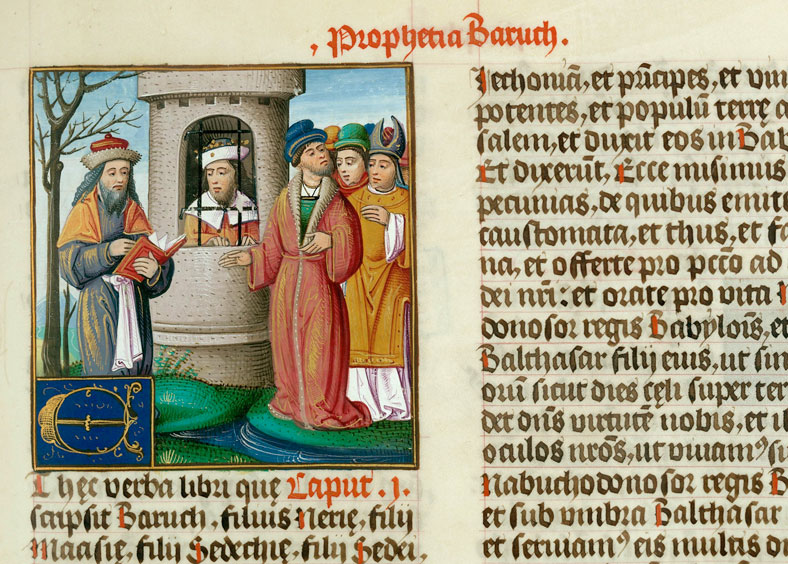 , Prophetia Baruch.
E
t hęc verba libri quę Caput .1.
scripsit Baruch, filius Nerię, filij
Maasię, filij Sedechię, filij Sedei,
Jechoniā, et prīcipes, et
potentes, et populū terrę a
salem, et duxit eos in Bab
Et dixerūt, Ecce misimus
pecunias, de quibus emite
caustomata, et thus, et fa
na, et offerte pro pcc̄o ad
dei nr̄i: et orate pro vita N
donosor regis Babylōis, et
Balthasar filij eius, ut sin
orū sicut dies cęli super ter
det dn̄s virtutē nobis, et il
oculos nr̄os, ut viviamꝰ
Nabuchodonosor regis B
et sub vmbra Balthasar
et serviamꝰ eis multis di